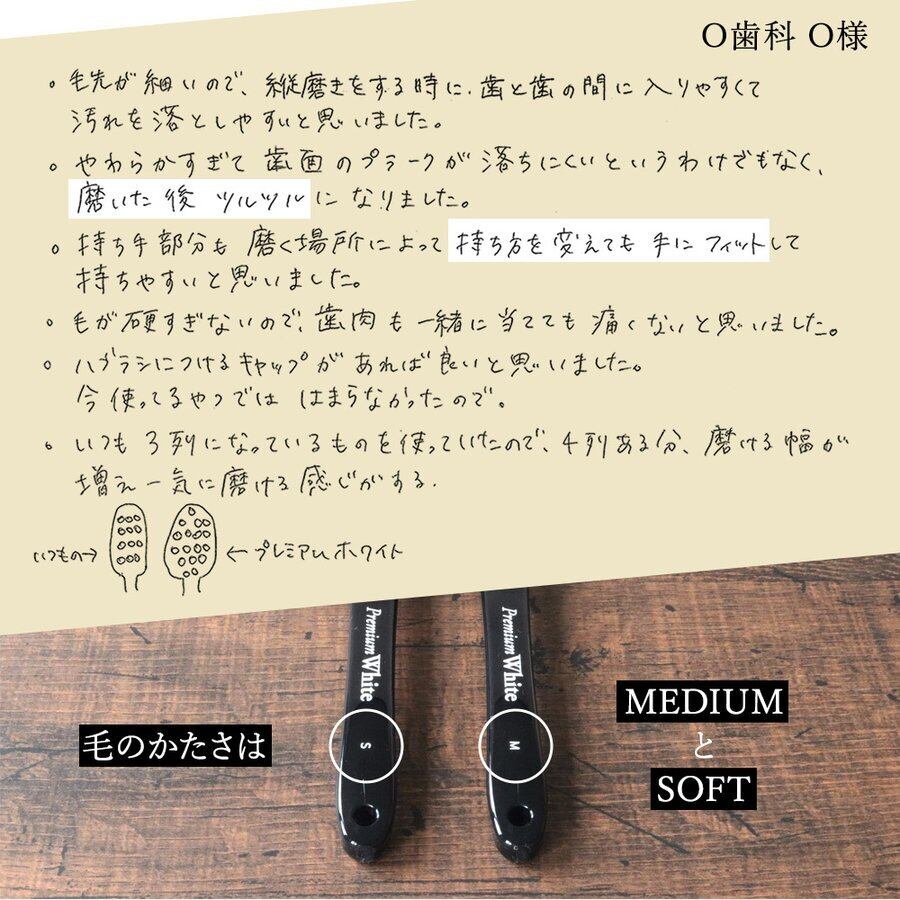 O歯科 O様
。毛先が細いので、縦磨きをする時に、歯と歯の間に入りやすくて
汚れを落としやすいと思いました。
。やわらかすぎて歯面のプラークが落ちにくいというわけでもなく、
磨いた後 ツルツルになりました。
。持ち手部分も磨く場所によって持ち方を変えても手にフィットして
持ちやすいと思いました。
。毛が硬すぎないので、歯肉も一緒に当てても痛くないと思いました。
。ハブラシにつけるキャップがあれば良いと思いました。
今使ってるやつでは はまらなかったので。
。いつも3列になっているものを使っていたので、4列ある分、磨ける幅が
増え一気に磨ける感じがする.
いつもの→
←プレミアムホワイト
Premium White
Premium White
毛のかたさは
S
M
MEDIUM
と
SOFT